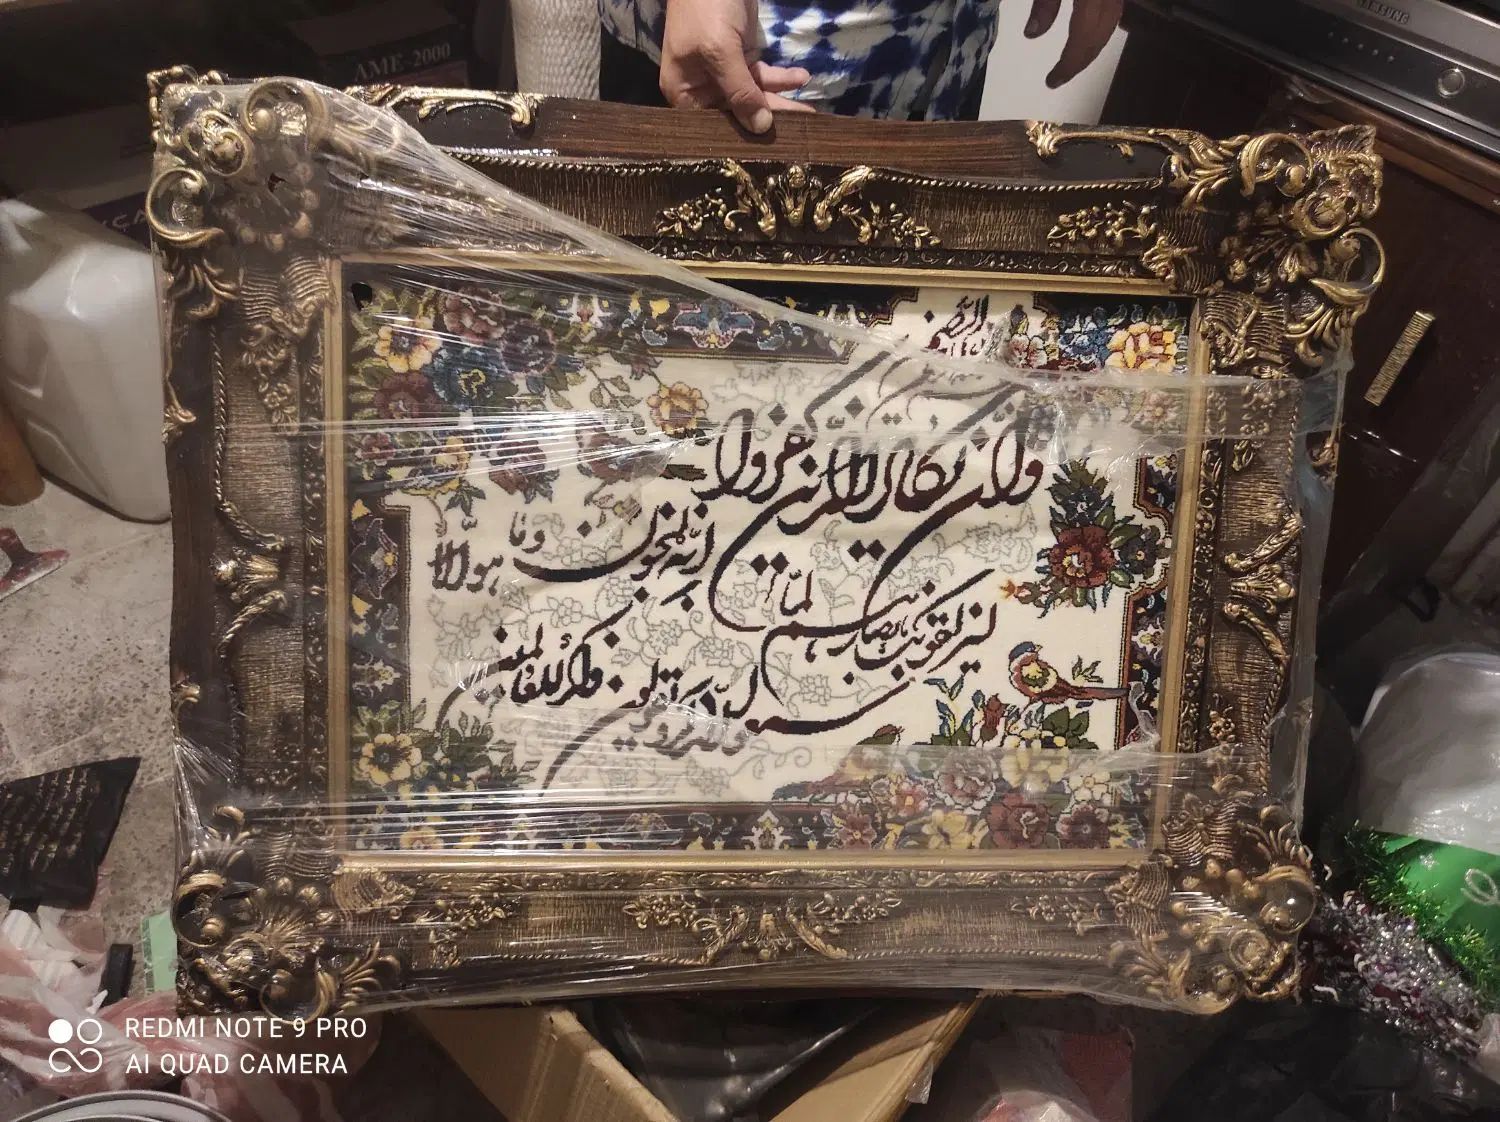 AME-2000
SAMSUNG
وان یکاد الذین کفروا
لیزلقونک بابصارهم لما
سمعوا الذکر و یقولون
انه لمجنون و ما
هو الا
ذکر للعالمین
REDMI NOTE 9 PRO
AI QUAD CAMERA